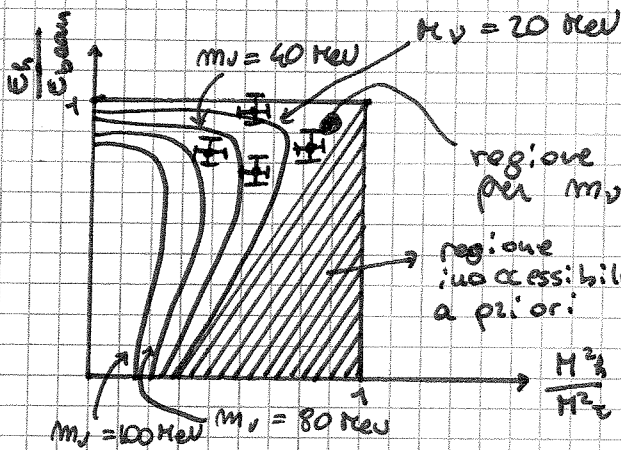 E_h / E_beam
1
m_ν = 40 MeV
m_ν = 20 MeV
regione
per m_ν
regione
inaccessibil
a priori
M²_h / M²_τ
1
m_ν = 100 MeV
m_ν = 80 MeV